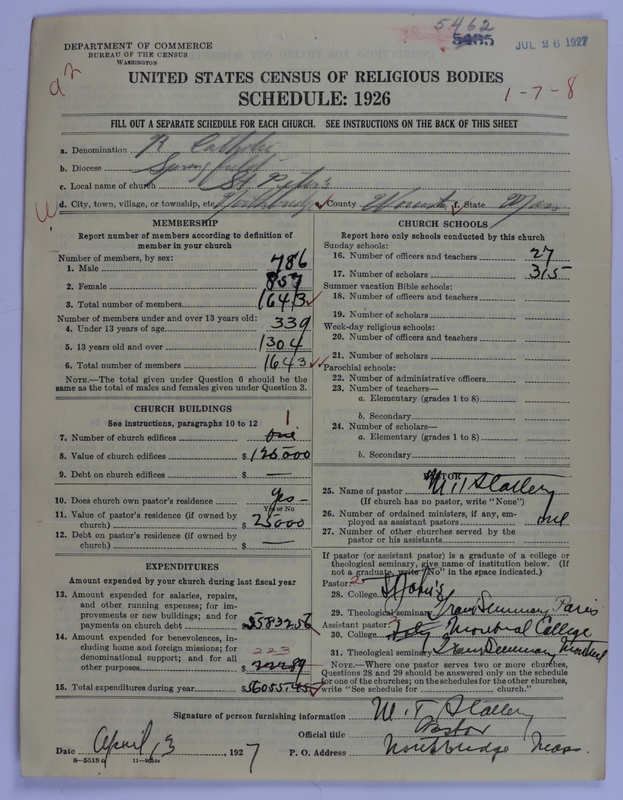 5462
5435
JUL 26 1927
DEPARTMENT OF COMMERCE
BUREAU OF THE CENSUS
WASHINGTON
UNITED STATES CENSUS OF RELIGIOUS BODIES
SCHEDULE: 1926
1-7-8
FILL OUT A SEPARATE SCHEDULE FOR EACH CHURCH. SEE INSTRUCTIONS ON THE BACK OF THIS SHEET
a. Denomination R Catholic
b. Diocese Springfield
c. Local name of church St. Peter's
d. City, town, village, or township, etc. Northbridge County Worcester f. State Mass
MEMBERSHIP
Report number of members according to definition of
member in your church
Number of members, by sex:
1. Male 786
2. Female 857
3. Total number of members 1643
Number of members under and over 13 years old:
4. Under 13 years of age 339
5. 13 years old and over 1304
6. Total number of members 1643
NOTE.—The total given under Question 6 should be
same as the total of males and females given under Question 3.
CHURCH BUILDINGS
See instructions, paragraphs 10 to 12
1
7. Number of church edifices one
8. Value of church edifices $ 125000
9. Debt on church edifices $ —
10. Does church own pastor's residence Yes
Yes or No
11. Value of pastor's residence (if owned by
church) $ 25000
12. Debt on pastor's residence (if owned by
church) $ —
EXPENDITURES
Amount expended by your church during last fiscal year
13. Amount expended for salaries, repairs,
and other running expenses; for im-
provements or new buildings; and for
payments on church debt $ 55832.56
14. Amount expended for benevolences, in-
cluding home and foreign missions; for
denominational support; and for all
223
other purposes $ 222.89
15. Total expenditures during year $ 56055.45
CHURCH SCHOOLS
Report here only schools conducted by this church
Sunday schools:
16. Number of officers and teachers 27
17. Number of scholars 315
Summer vacation Bible schools:
18. Number of officers and teachers
19. Number of scholars
Week-day religious schools:
20. Number of officers and teachers
21. Number of scholars
Parochial schools:
22. Number of administrative officers
23. Number of teachers—
a. Elementary (grades 1 to 8)
b. Secondary
24. Number of scholars—
a. Elementary (grades 1 to 8)
b. Secondary
PASTOR
25. Name of pastor M T Slattery
(If church has no pastor, write "None")
26. Number of ordained ministers, if any, em-
ployed as assistant pastors one
27. Number of other churches served by the
pastor or his assistants
If pastor (or assistant pastor) is a graduate of a college or
theological seminary, give name of institution below. (If
not a graduate, write "No" in the space indicated.)
Pastor: 2
28. College St John's
29. Theological seminary Seminary Paris
Assistant pastor:
30. College Montreal College
31. Theological seminary Seminary Montreal
NOTE.—Where one pastor serves two or more churches,
Questions 28 and 29 should be answered only on the schedule
for one of the churches; on the schedules for the other churches,
write "See schedule for church."
Signature of person furnishing information M. T. Slattery
Official title Pastor
Date April 13, 1927 P. O. Address Northbridge Mass.
8—5518 a